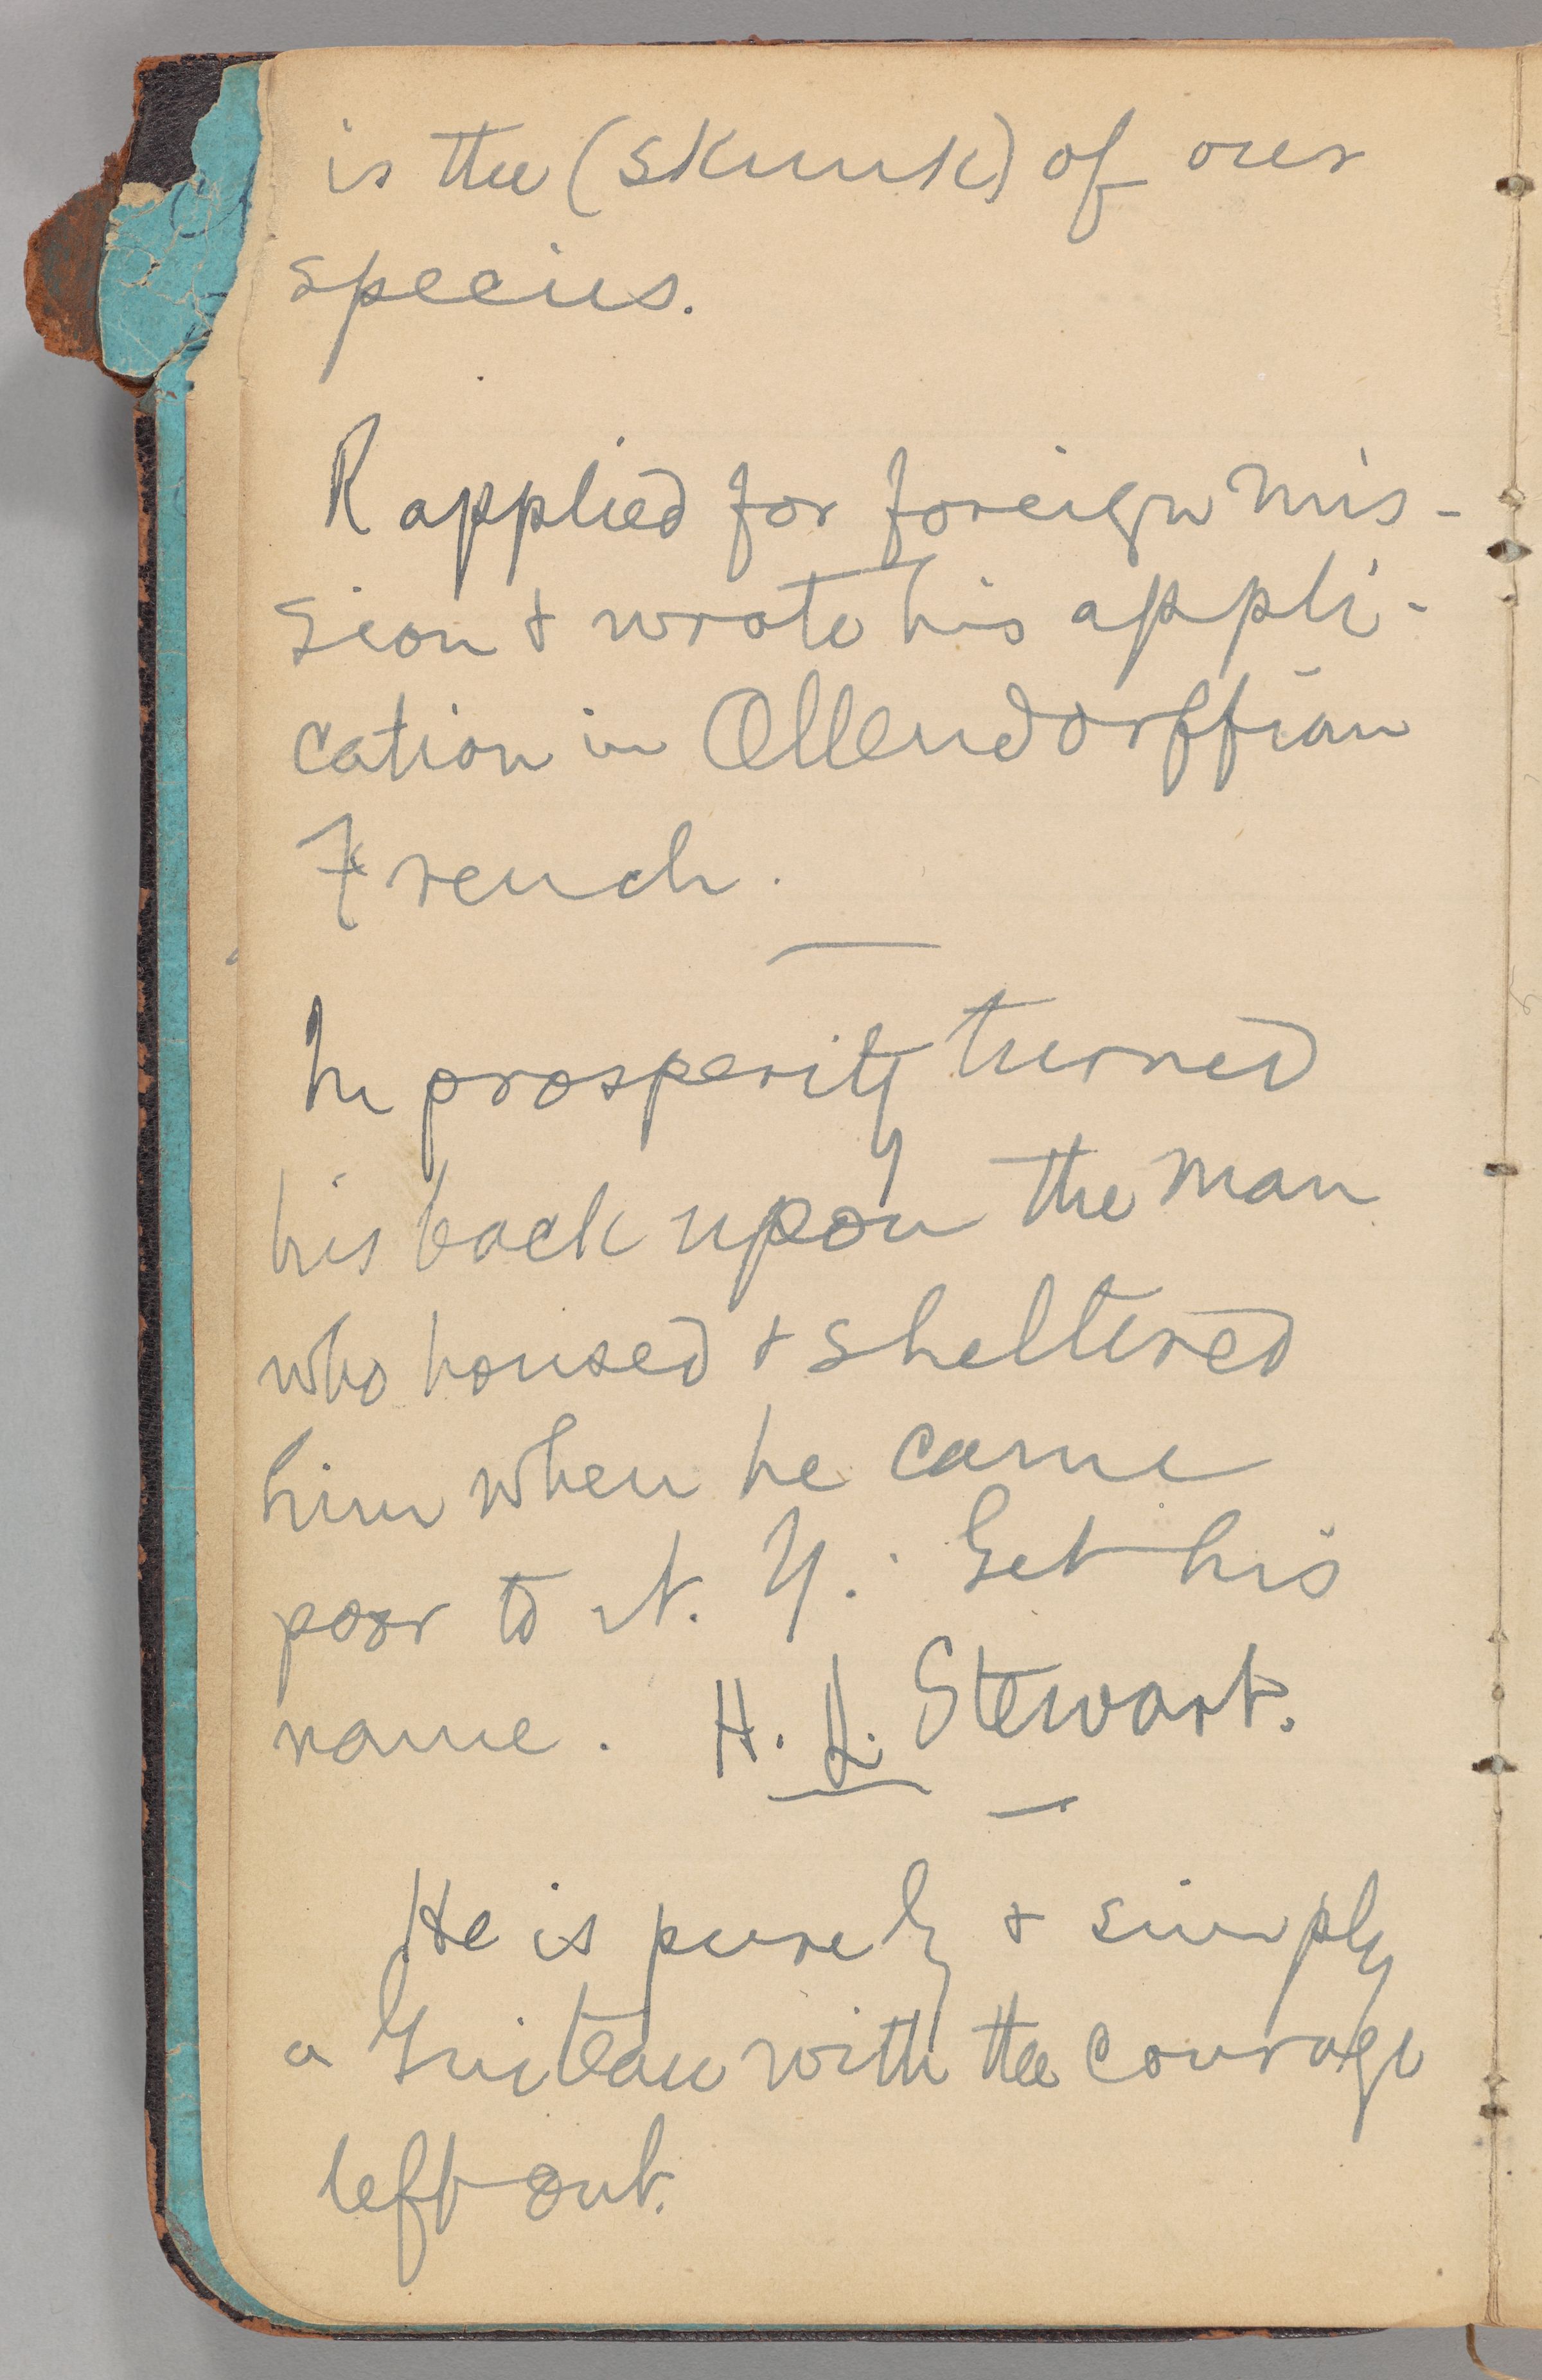 is the (skunk) of our
species.
R applied for foreign mis-
sion & wrote his appli-
cation in Ollendorffian
French.
In prosperity turned
his back upon the man
who housed & sheltered
him when he came
poor to N. Y. Get his
name. H. L. Stewart.
He is purely & simply
a Guiteau with the courage
left out.